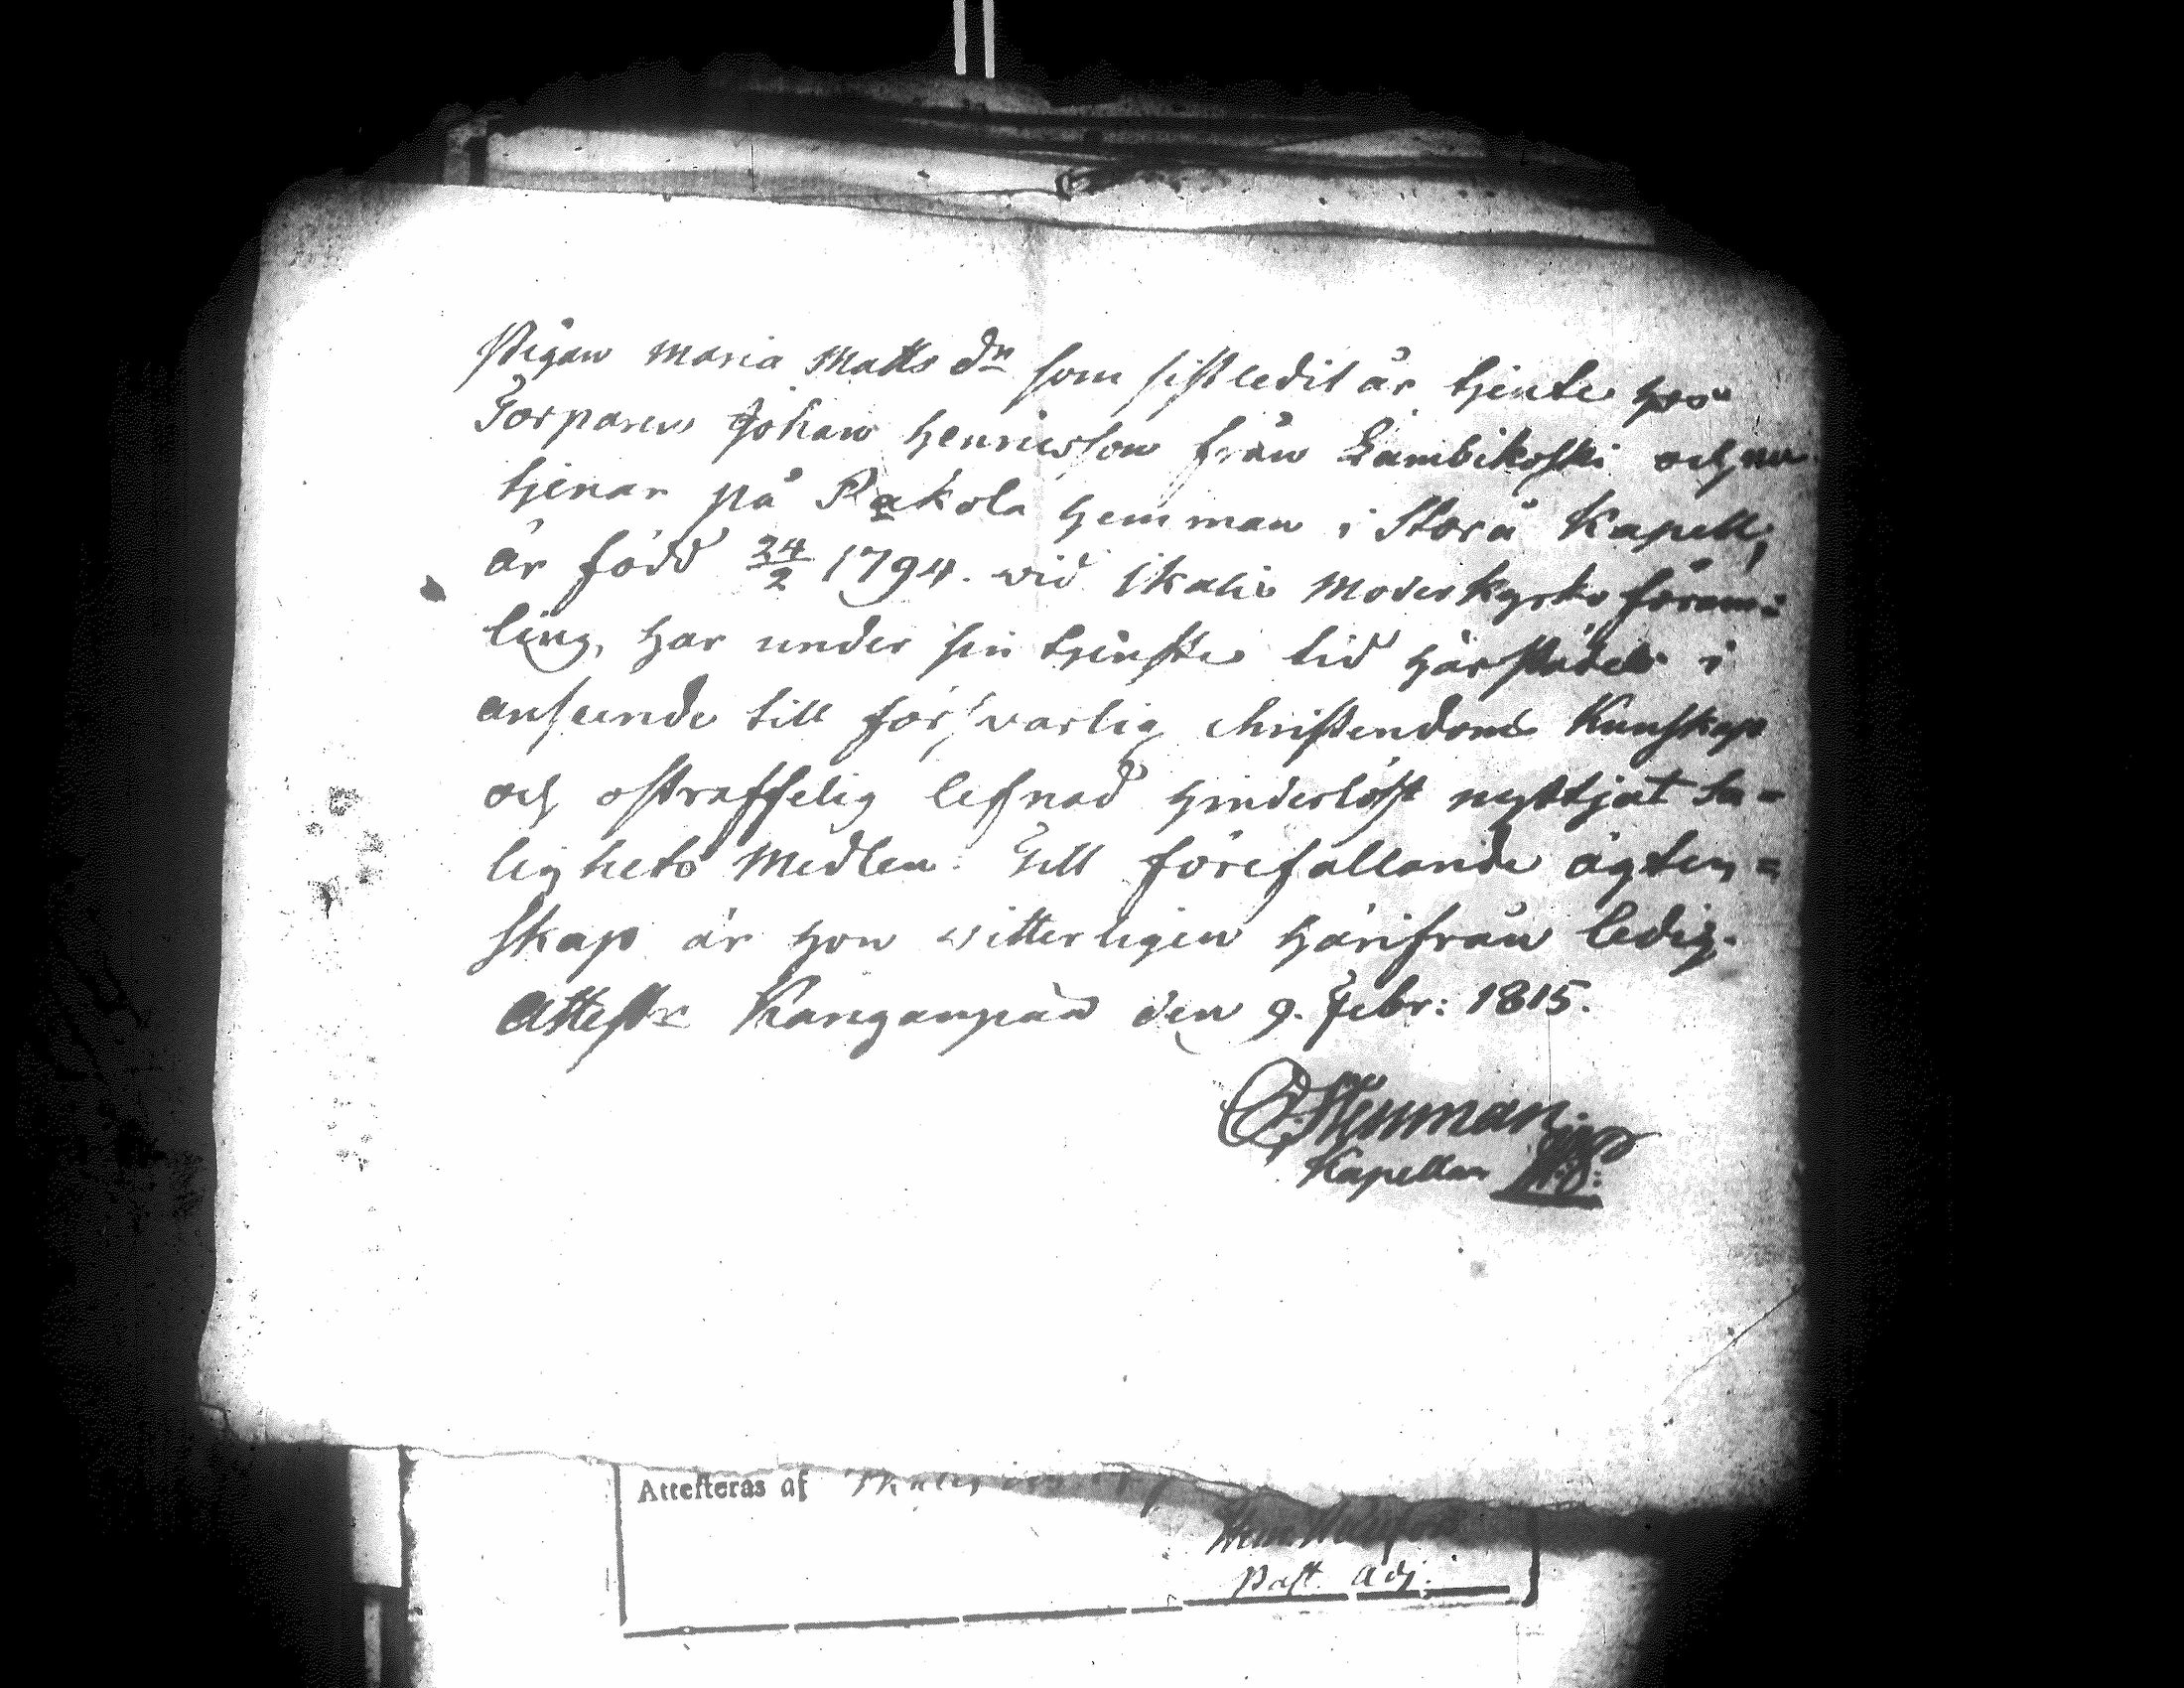 Pigan Maria Matts dr som sistledit år tjente hos
Torparen Johan Henricsson från Lambikoski och nu
tjenar på Rakola Hemman i Storå Kapell,
är född 24/2 1794. wid Ikalis Moderkyrko försam=
ling, har under sin tjenste tid härstädes i
anseende till försvarlig christendoms Kunskap
och ostraffelig lefnad hinderlöst nyttjat Sa=
lighets Medlen. Till förefallande ägten=
skap är hon witterligen härifrån ledig.
Attest. Kanganpää den 9. Febr: 1815.
Stenman.
Kapellan
Attesteras af
Past. Adj.